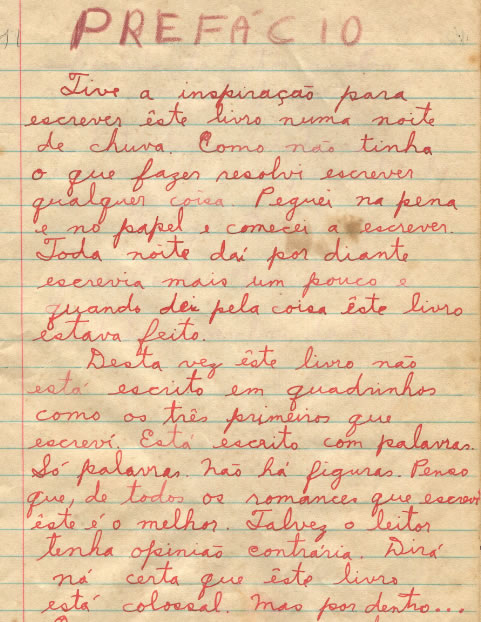 PREFÁCIO
Tive a inspiração para
escrever êste livro numa noite
de chuva. Como não tinha
o que fazer resolvi escrever
qualquer coisa. Peguei na pena
e no papel e comecei a escrever.
Toda noite daí por diante
escrevia mais um pouco e
quando dei pela coisa êste livro
estava feito.
Desta vez êste livro não
está escrito em quadrinhos
como os três primeiros que
escrevi. Está escrito com palavras.
Só palavras. Não há figuras. Penso
que, de todos os romances que escrevi
êste é o melhor. Talvez o leitor
tenha opinião contrária. Dirá
ná certa que êste livro
está colossal. Mas por dentro...